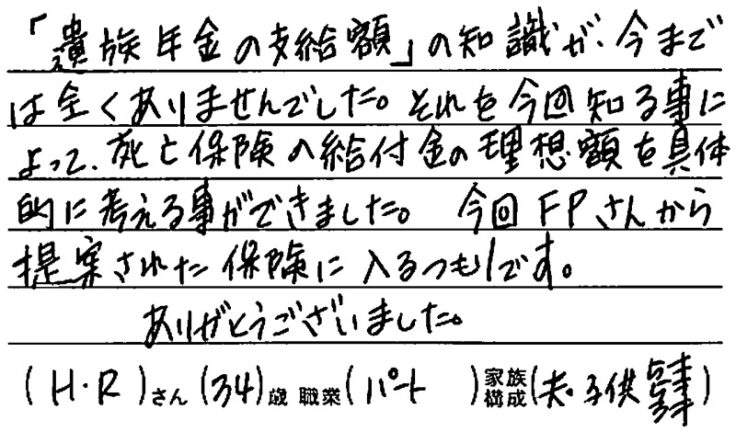 「遺族年金の支給額」の知識が、今まで
は全くありませんでした。それを今回知る事に
よって、死亡保険の給付金の理想額を具体
的に考える事ができました。 今回FPさんから
提案された保険に入るつもりです。
ありがとうございました。
(H・R)さん(34)歳 職業(パート )家族構成(夫・子供)